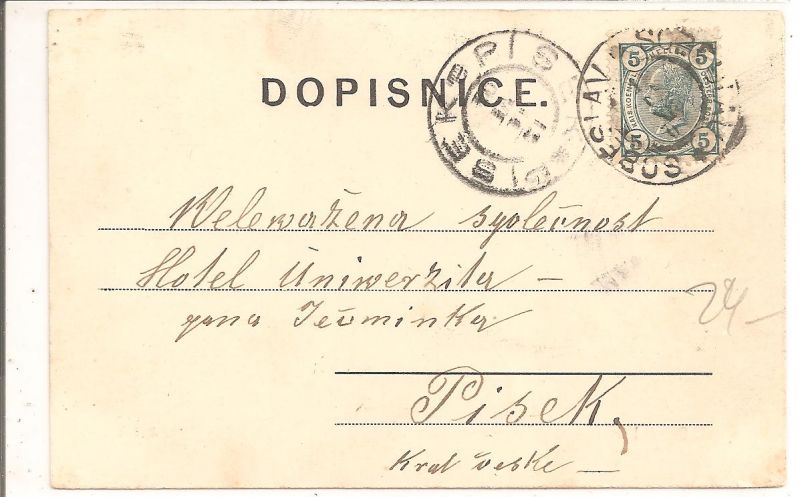 DOPISNICE.
PISEK PISEK
5 5
5 5
Welewažena společnost
Hotel Uniwerzita –
pana Ječminka
Pisek,
Kral česke –
24–